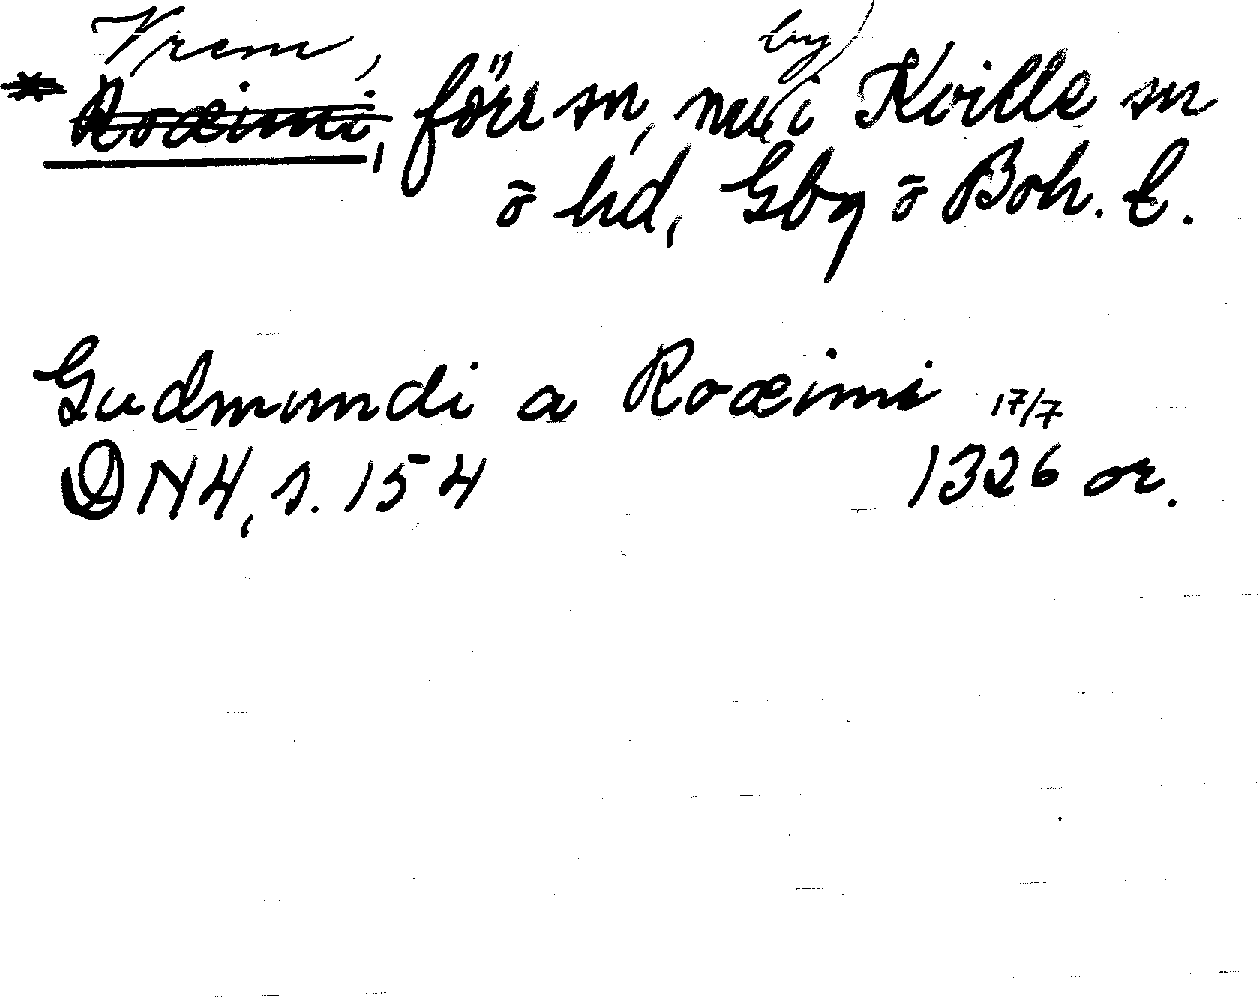 Vrem,
Roæimi, förr sn, nu by i Kville sn
o hd, Gbg o Boh. l.
Gudmundi a Roæimi 17/7
DN 4, s. 154 1326 or.